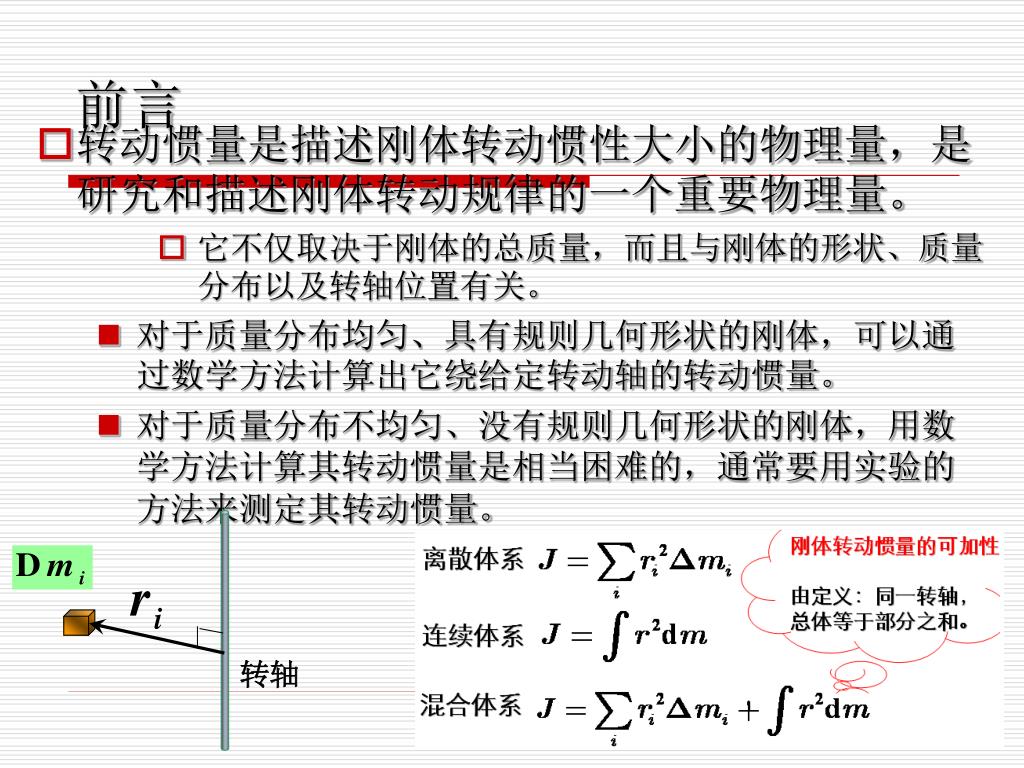 前言
转动惯量是描述刚体转动惯性大小的物理量，是
研究和描述刚体转动规律的一个重要物理量。
它不仅取决于刚体的总质量，而且与刚体的形状、质量
分布以及转轴位置有关。
对于质量分布均匀、具有规则几何形状的刚体，可以通
过数学方法计算出它绕给定转动轴的转动惯量。
对于质量分布不均匀、没有规则几何形状的刚体，用数
学方法计算其转动惯量是相当困难的，通常要用实验的
方法来测定其转动惯量。
D m i
r i
转轴
离散体系 J = ∑ᵢ rᵢ²Δmᵢ
连续体系 J = ∫ r²dm
混合体系 J = ∑ᵢ rᵢ²Δmᵢ + ∫ r²dm
刚体转动惯量的可加性
由定义：同一转轴，
总体等于部分之和。